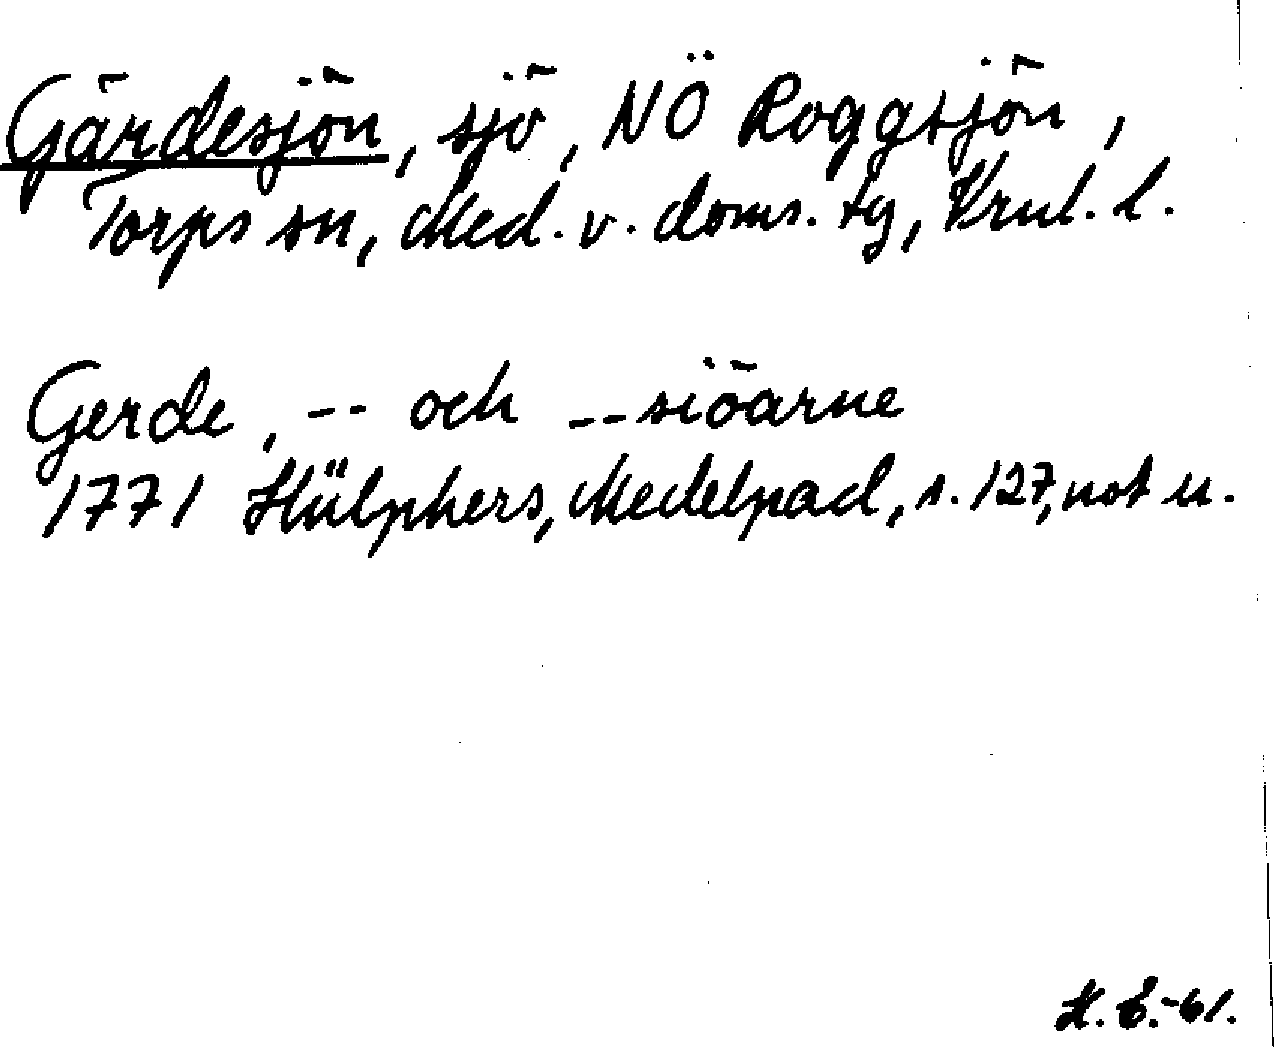 Gärdesjön, sjö, NÖ Roggsjön,
Torps sn, Med. v. doms. tg, Vrnl. l.
Gerde, -- och --siöarne
1771 Hülphers, Medelpad, s. 127, not u.
H. E. -61.